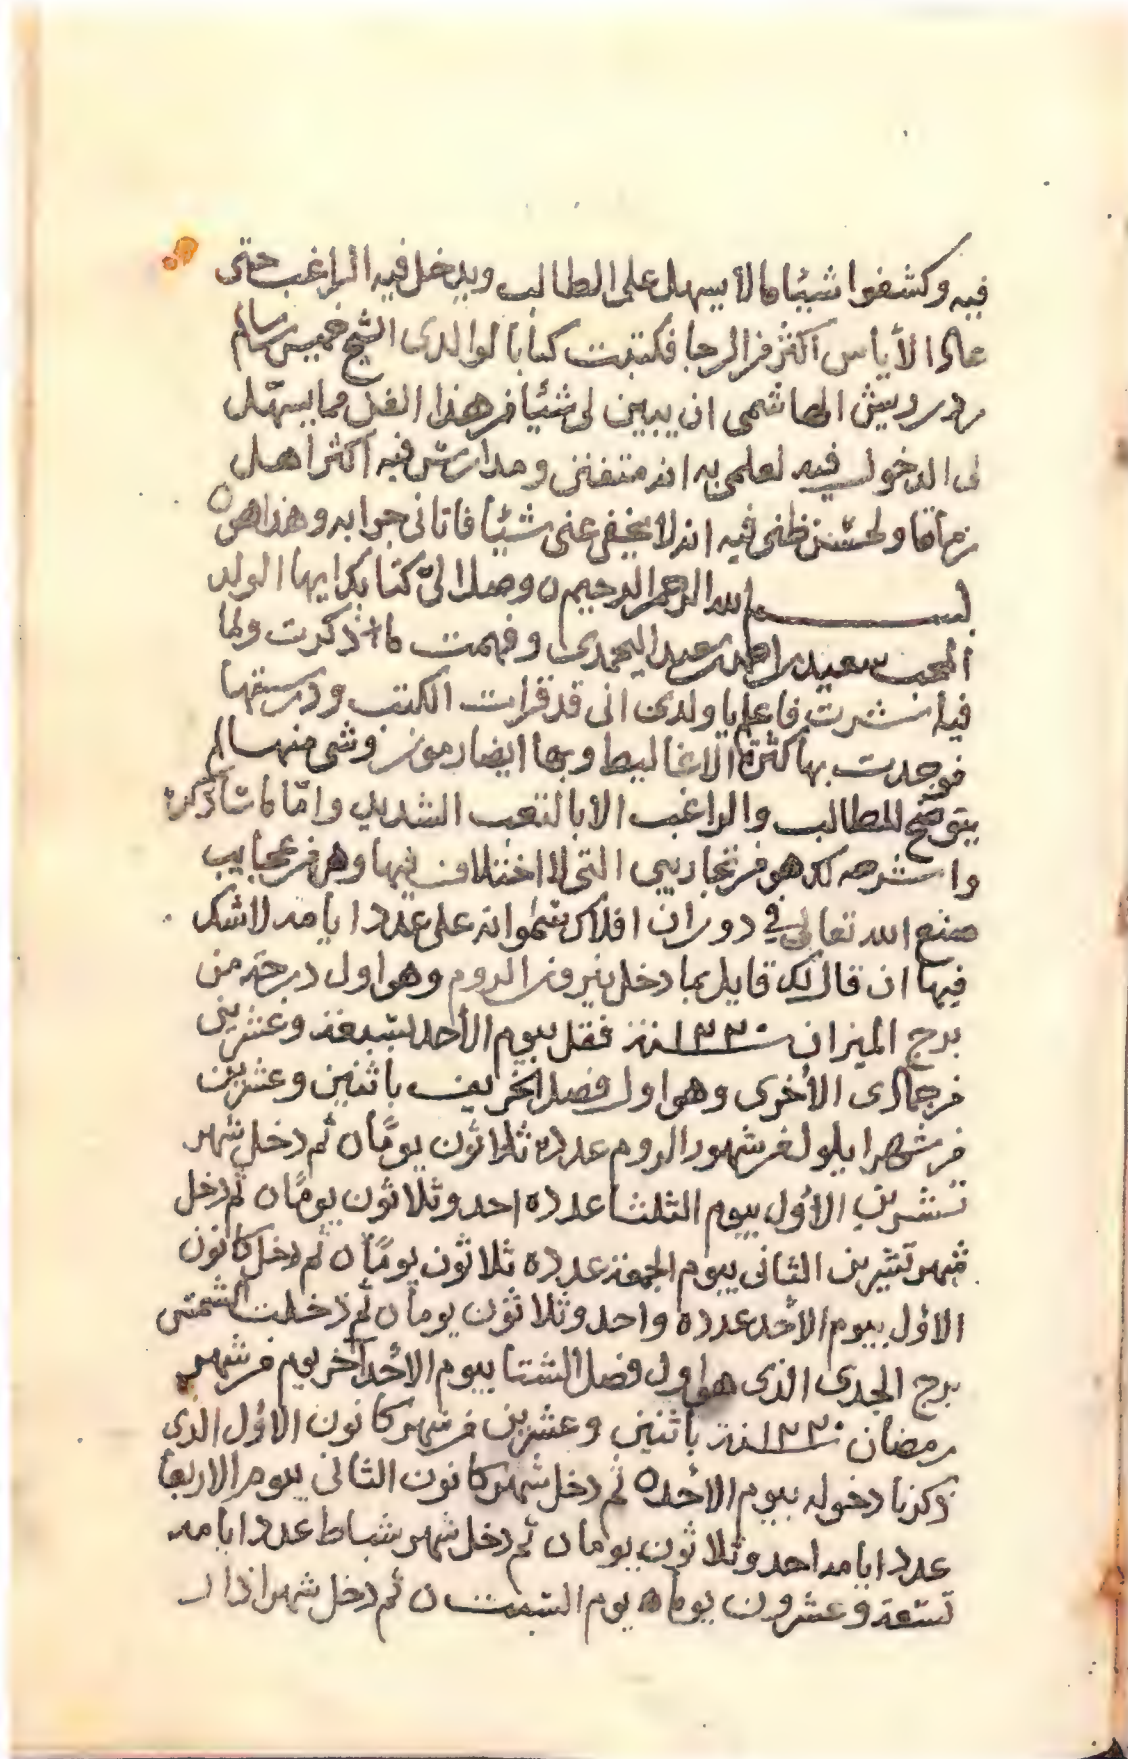 فيه وكشفوا شيئا مالا يسهل على الطالب ويدخل فيه الراغب حتى
عاد الأياس اكثر من الرجا فكتبت كتابا لوالدى الشيخ خميس بن سالم
بن درويش الهاشمى ان يبين لى شيئا من هذا الفن مما يسهّل
لى الدخول فيه لعلمى به انه متفنن ومدارس فيه أكثر اهل
زماننا ولحسن ظنى فيه انه لا يخفى عنى شيئا فاتانى جوابه وهذا هو ه
بسم الله الرحمن الرحيم ه وصل الىّ كتابك ايها الولد
المحب سعيد بن احمد بن سعيد اليحمدى وفهمت ما ذكرت ولما
فيه شرت فاعلم يا ولدى انى قد قرات الكتب ودرستها
فوجدت بها كثرة الاغاليط وبها ايضا رموز وشى منها لم
يتوضح للطالب والراغب الا بالتعب الشديد وامّا ما سأذكره
واشرحه لك هو من تجاريبى التى لا اختلاف فيها وهى من عجايب
صنع الله تعالى في دوران افلاك سمواته على عدد ايامه لا شك
فيها ان قال لك قايل بما دخل نيروز الروم وهو اول درجة من
برج الميزان ١٣٣٠سنة فقل بيوم الأحد سبعة وعشرين
من جمادى الأخرى وهو اول فصل الخريف باثنين وعشرين
من شهر ايلول من شهور الروم عدده ثلاثون يومًا ه ثم دخل شهر
تشرين الأول بيوم الثلثا عدده احد وثلاثون يومًا ه ثم دخل
شهر تشرين الثانى بيوم الجمعة عدده ثلاثون يومًا ه ثم دخل كانون
الاول بيوم الأحد عدده واحد وثلاثون يوما ه ثم دخلت الشمس
برج الجدى الذى هو اول فصل الشتا بيوم الأحد آخر يوم من شهر
رمضان ١٣٣٠سنة باثنين وعشرين من شهر كانون الاول الذى
ذكرنا دخوله بيوم الأحد ه ثم دخل شهر كانون الثانى بيوم الاربعا
عدد ايامه احد وثلاثون يوما ه ثم دخل شهر شباط عدد ايامه
تسعة وعشرون يوما ه يوم السبت ه ثم دخل شهر اذار